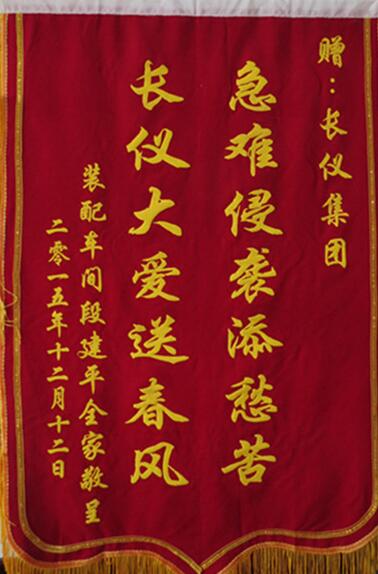 赠：长仪集团
急难侵袭添愁苦
长仪大爱送春风
装配车间段建平全家敬呈
二零一五年十二月十二日